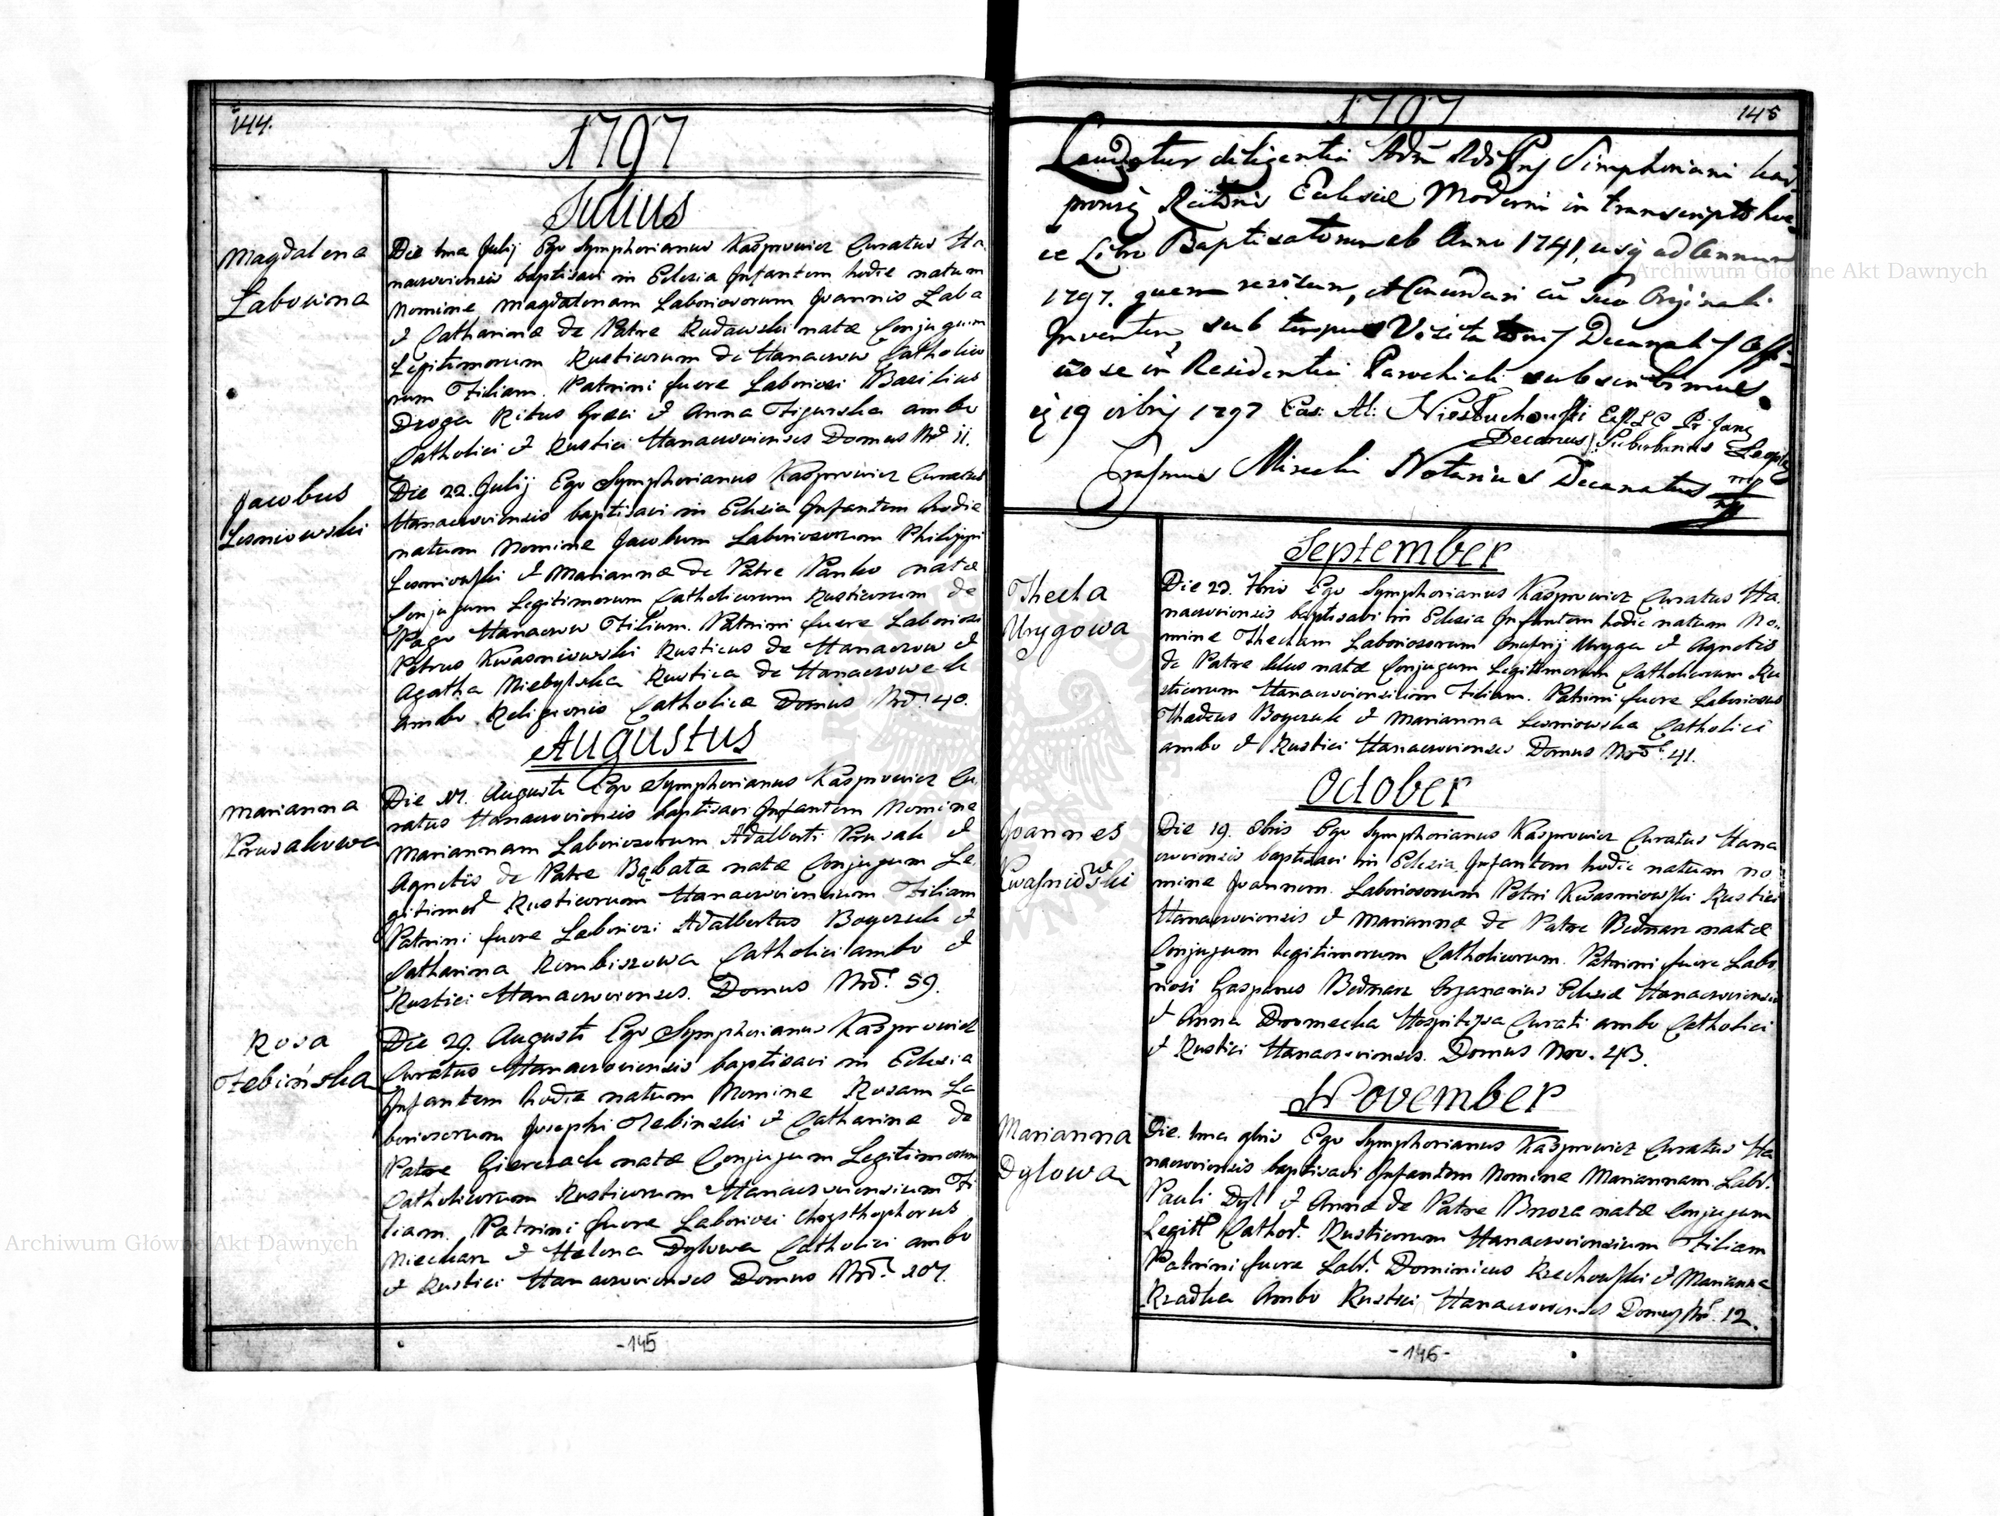 144.
1797
Julius
Magdalena
Labowna
Die 1ma Julij Ego Symphorianus Kasprowicz Curatus Ha
naczoviensis baptisavi in Eclesia Infantem hodie natum
Nomine Magdalenam Laboriosorum Joannis Laba
et Catharinæ de Patre Rudawski natæ Conjugum
Legitimorum Rusticorum de Hanaczow Catholico
rum Filiam. Patrini fuere Laboriosi Basilius
Droga Ritus Græci et Anna Figurska ambo
Catholici et Rustici Hanaczovienses Domus Nro 11.
Jacobus
Lesniowski
Die 22. Julij Ego Symphorianus Kasprowicz Curatus
Hanaczoviensis baptisavi in Eclesia Infantem hodie
natum Nomine Jacobum Laboriosorum Philippi
Lesniowski et Mariannæ de Patre Panko natæ
Conjugum Legitimorum Catholicorum Rusticorum de
Pago Hanaczow Filium. Patrini fuere Laboriosi
Petrus Kwasniowski Rusticus de Hanaczow et
Agatha Niebylska Rustica de Hanaczowek
ambo Religionis Catholicæ Domus Nro. 40.
Augustus
Marianna
Prusakowa
Die Augusti Ego Symphorianus Kasprowicz Cu
ratus Hanaczoviensis baptisavi Infantem Nomine
Mariannam Laboriosorum Adalberti Prusak et
Agnetis de Patre Bąbata natæ Conjugum Le
gitimor Rusticorum Hanaczoviensium Filiam
Patrini fuere Laboriosi Adalbertus Boyczuk et
Catharina Rembiszowa Catholici ambo et
Rustici Hanaczovienses. Domus Nro. 59.
Rosa
Zebińska
Die 29. Augusti Ego Symphorianus Kasprowicz
Curatus Hanaczoviensis baptisavi in Eclesia
Infantem hodie natum Nomine Rosam La
boriosorum Josephi Zebinski et Catharinæ de
Patre Gierczak natæ Conjugum Legitimorum
Catholicorum Rusticorum Hanaczoviensium Fi
liam. Patrini fuere Laboriosi Chrysthophorus
Niecharz et Helena Dylowa Catholici ambo
et Rustici Hanaczovienses Domus Nro. 107.
-145
1797
145
Laudatur diligentia Adm Rdi Simphoriani Kas
prowicz Ecclesiæ Moderni in transcripto hoc
ce Libro Baptisatorum ab Anno 1741, usq ad Annum
1797. quem revisum, et cum suo Originali
Inventum, sub tempus Visitationis Decanalis
in Residentia Parochiali subscribimus.
19 1797
Decanus
Erasmus Mirecki Notarius Decanatus
September
Thecla
Urygowa
Die 23. 7bris Ego Symphorianus Kasprowicz Curatus Ha
naczoviensis baptisavi in Eclesia Infantem hodie natum No
mine Theclam Laboriosorum Onufrij Uryga et Agnetis
de Patre natæ Conjugum Legitimorum Catholicorum Ru
sticorum Hanaczoviensium Filiam. Patrini fuere Laboriosus
Thadeus Boyczuk et Marianna Lesniowska Catholici
ambo et Rustici Hanaczovienses Domus Nro. 41.
October
Joannes
Kwasniowski
Die 19. 8bris Ego Symphorianus Kasprowicz Curatus Hana
czoviensis baptisavi in Eclesia Infantem hodie natum no
mine Joannem Laboriosorum Petri Kwasniowski Rustici
Hanaczoviensis et Mariannæ de Patre Bednarz natæ
Conjugum legitimorum Catholicorum. Patrini fuere Labo
riosi Gasparus Bednarz Organarius Eclesiæ Hanaczoviensis
et Anna Hospitissa Curati ambo Catholici
et Rustici Hanaczovienses. Domus Nro. 43.
November
Marianna
Dylowa
Die 1ma 9bris Ego Symphorianus Kasprowicz Curatus Ha
naczoviensis baptisavi Infantem Nomine Mariannam Labr.
Pauli Dyl et Annæ de Patre Brzoza natæ Conjugum
Legit. Cathor. Rusticorum Hanaczoviensium Filiam
Patrini fuere Labr. Dominicus Rzechowski et Marianna
Rzadka Ambo Rustici Hanaczovienses Domus Nr. 12.
-146-
Archiwum Główne Akt Dawnych
Archiwum Główne Akt Dawnych